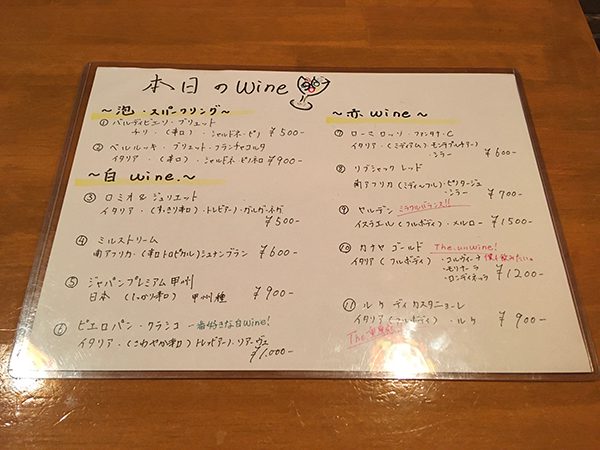 本日のwine
～泡・スパークリング～
① バルディビエソ・ブリュット
チリ・(辛口)・シャルドネ・ピノ ¥500-
② ベルルッキ・ブリュット・フランチャコルタ
イタリア・(辛口)・シャルドネ ピノネロ ¥900-
～白 wine.～
③ ロミオ&ジュリエット
イタリア・(すっきり辛口)・トレビアーノ・ガルガネガ
¥500-
④ ミルストリーム
南アフリカ・(辛口トロピカル)シュナンブラン ¥600-
⑤ ジャパンプレミアム 甲州
日本 (しっかり辛口) 甲州種 ¥900-
⑥ ピエロパン・クラシコ 一番好きな白wine!
イタリア・(さわやか辛口) トレッビアーノ・ソアーヴェ
¥1.000-
～赤 wine～
⑦ ローマ ロッソ・
イタリア・(ミディアム) モンテプルチアーノ・
・シラー ¥600-
⑧ リブシャック レッド
南アフリカ (ミディ,フル)・ピノタージュ
・シラー ¥700-
⑨ ヤルデン ミラクルバランス!!
イスラエル (フルボディ)・メルロー ¥1500-
⑩ カナヤ ゴールド The.unwine!
イタリア (フルボディ)・コルヴィーナ 僕も飲みたい。
・モリナーラ
・ロンディネッラ ¥1200-
⑪ ルケ ディ カスタニョーレ
イタリア (フルボディ)・ルケ ¥900-